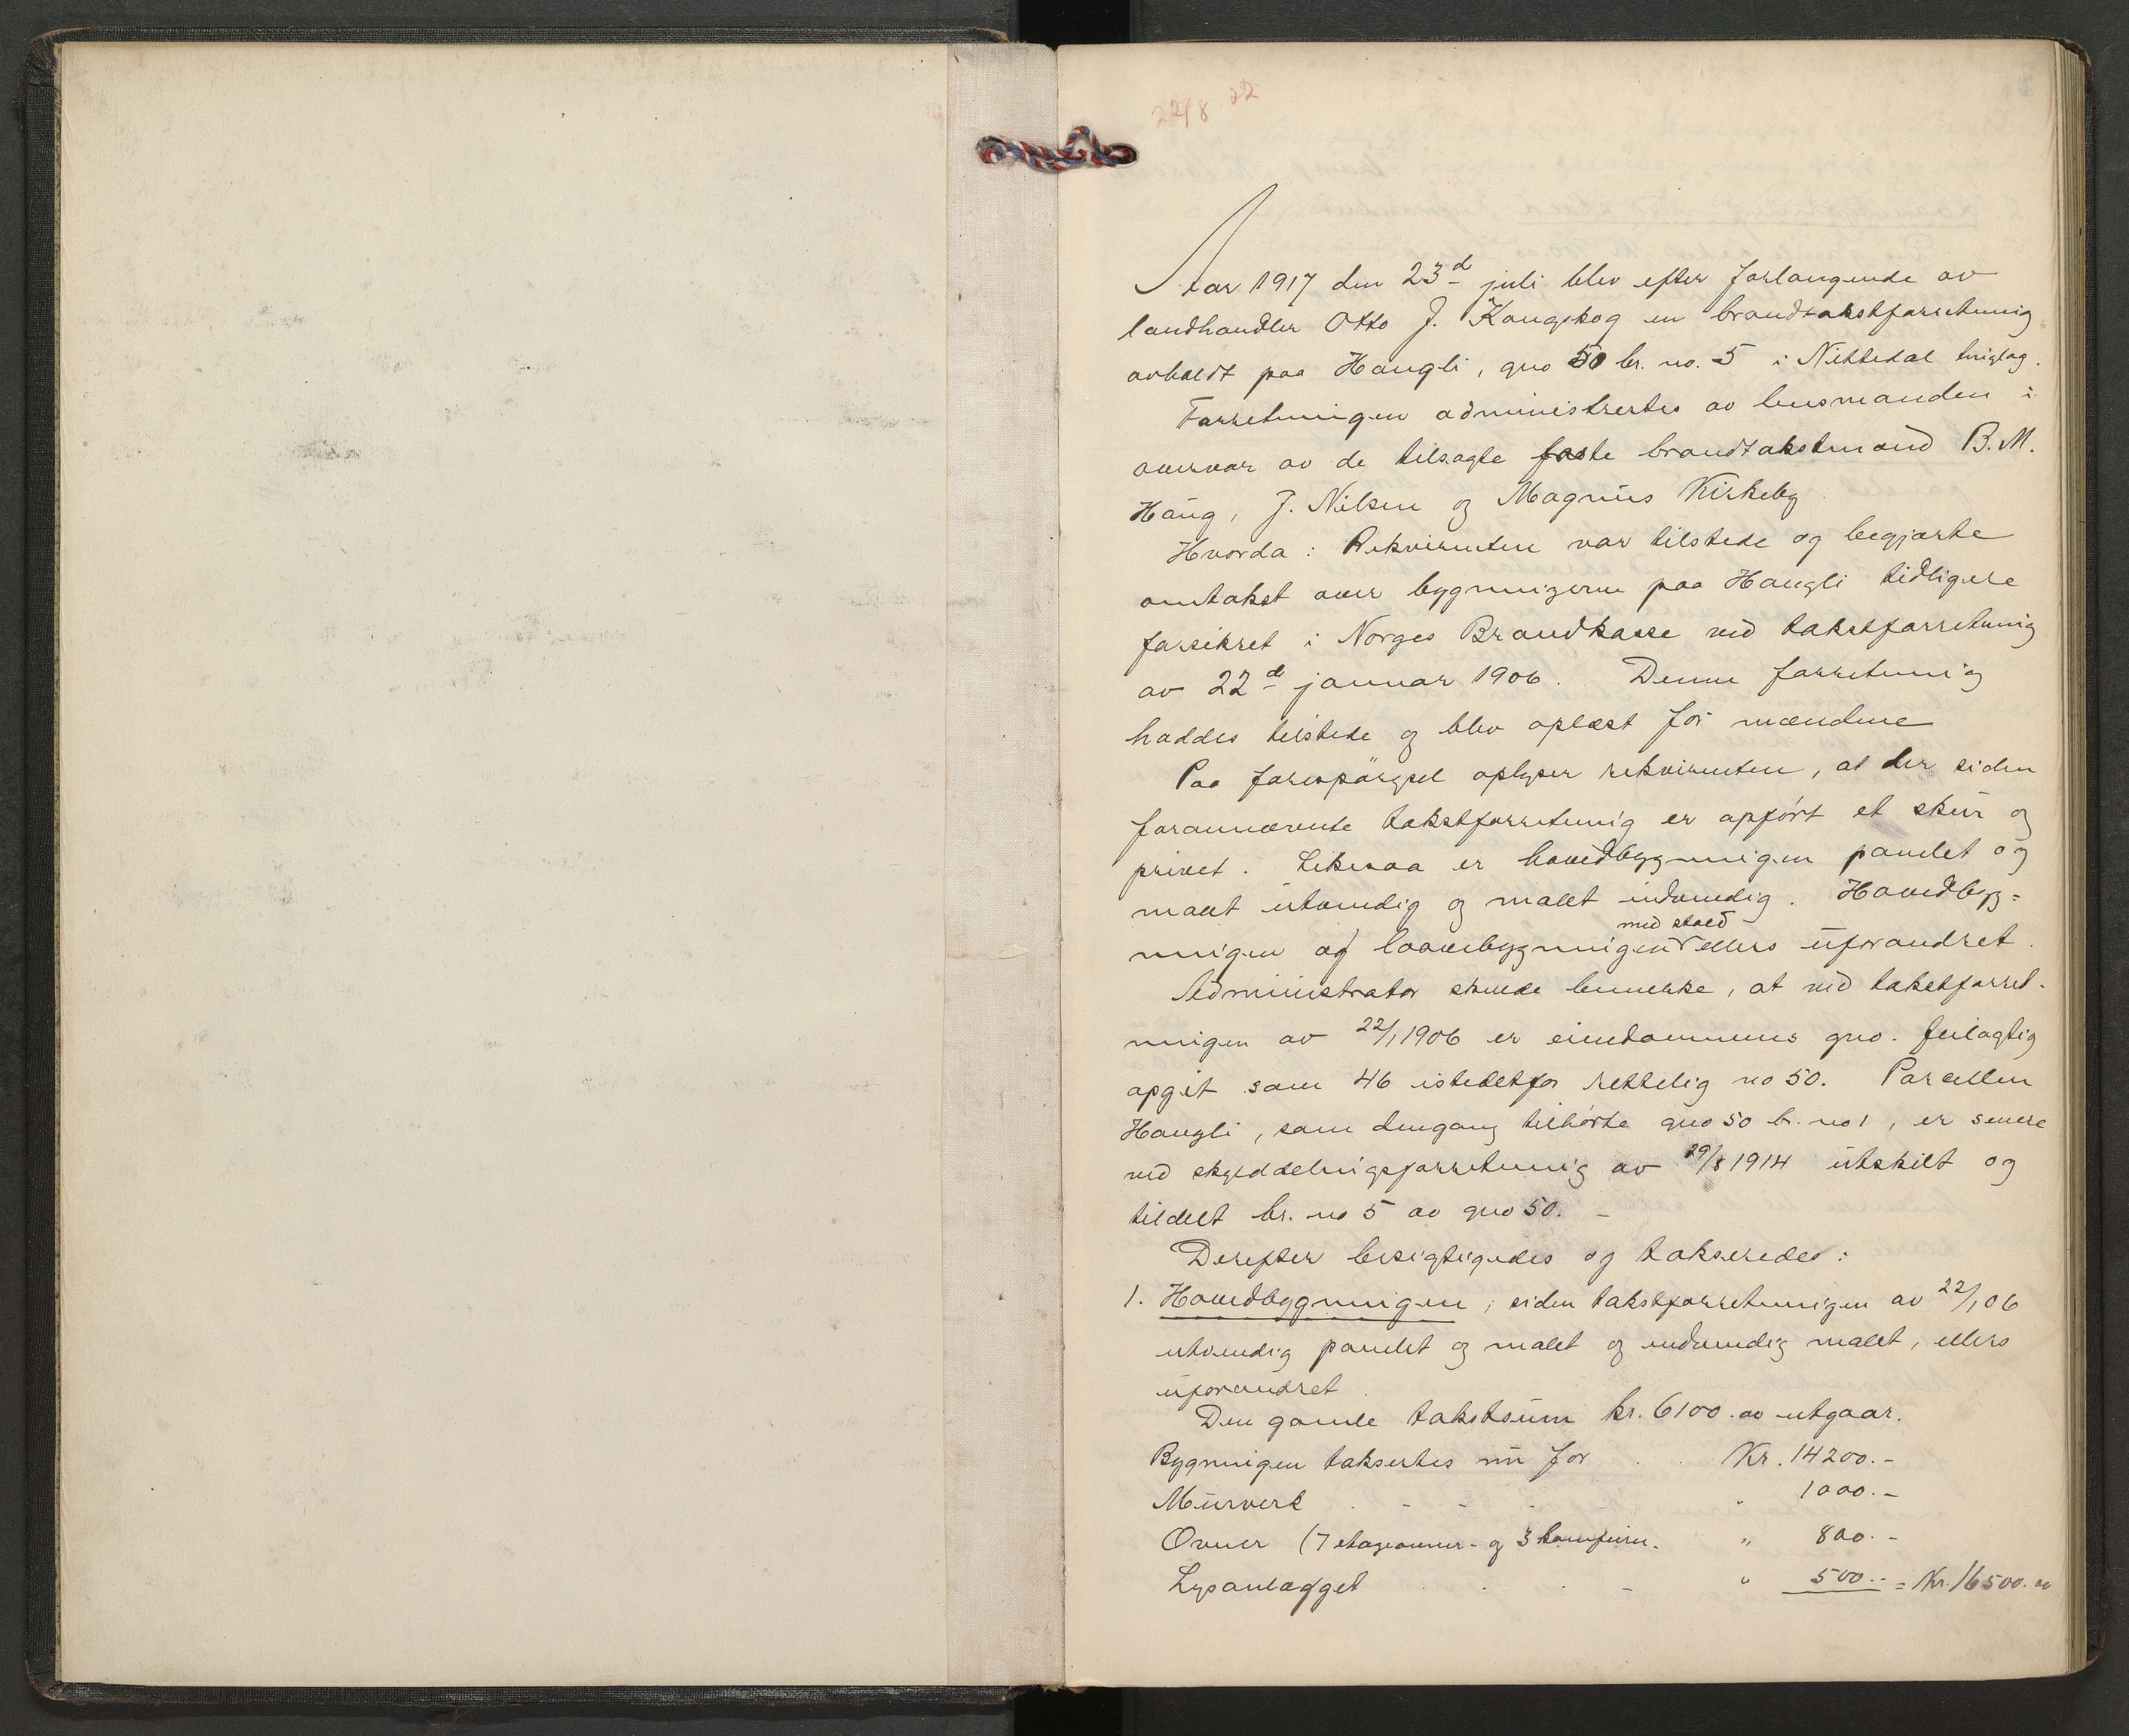 22/8 22
Aar 1917 den 23d juli blev efter forlangende av
landhandler Otto J. Kangskog en brandtakstforretning
avholdt paa Haugli, gno 50 br. no. 5 i Nittedal tinglag.
Forretningen administrertes av lensmanden i
overvær av de tilsagte faste brandtakstmænd B. M.
Haug, J. Nilsen og Magnus Kirkeby.
Hvorda: Rekvirenten var tilstede og begjærte
omtakst over bygningerne paa Haugli tidligere
forsikret i Norges Brandkasse ved takstforretning
av 22d januar 1906. Denne forretning
haddes tilstede og blev oplæst for mændene
Paa forespørgsel oplyser rekvirenten, at der siden
forannævnte takstforretning er opført et skur og
privet. Likesaa er hovedbygningen panelet og
malt utvendig og malet indvendig. Hovedbyg=
ningen og laavebygningen med stald ellers uforandret.
Administrator skulde bemerke, at ved takstforret-
ningen av 22/1 1906 er eiendommens gno. feilagtig
opgit som 46 istedetfor rettelig no 50. Parcellen
Haugli, som dengang tilhørte gno 50 br. no 1, er senere
ved skylddelingsforretning av 29/8 1914 utskilt og
tildelt br. no 5 av gno 50. -
Derefter besigtigedes og takseredes:
1. Hovedbygningen; siden takstforretningen av 22/1 06
utvendig panelet og malet og indvendig malet, ellers
uforandret.
Den gamle takstsum kr. 6100.00 utgaar.
Bygningen taksertes nu for . . Kr. 14200.-
Murverk . - - - " 1000.-
Ovner (7 etageovner- og 3 komfurer. " 800.-
Lysanlægget . . . - " 500.- = Kr. 16500.00